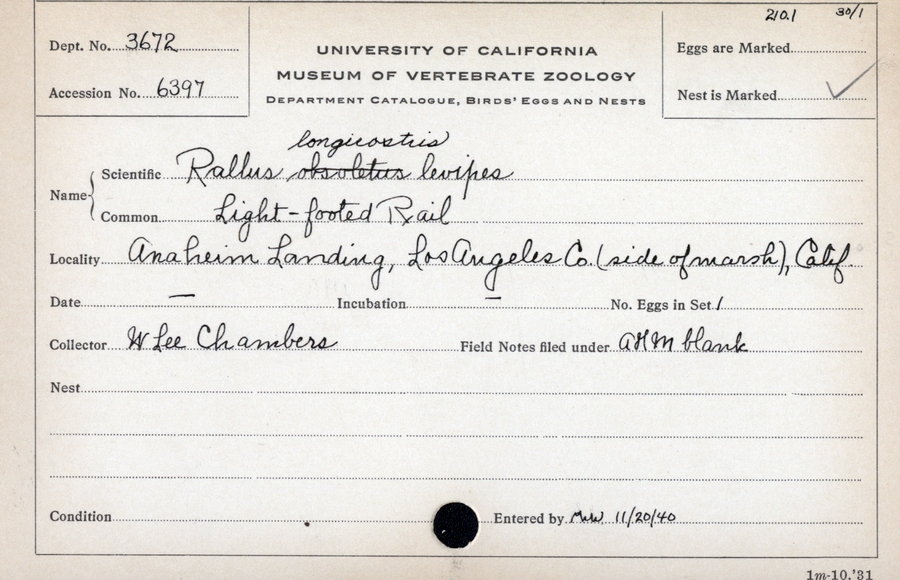 210.1 30/1
Dept. No. 3672
UNIVERSITY OF CALIFORNIA
Eggs are Marked
MUSEUM OF VERTEBRATE ZOOLOGY
Accession No. 6397
Nest is Marked ✓
DEPARTMENT CATALOGUE, BIRDS' EGGS AND NESTS
longirostris
Name Scientific Rallus obsoletus levipes
Common Light-footed Rail
Locality Anaheim Landing, Los Angeles Co. (side of marsh), Calif.
Date — Incubation — No. Eggs in Set 1
Collector W Lee Chambers Field Notes filed under AHM blank
Nest
Condition Entered by MWW 11/20/40
1m-10,'31